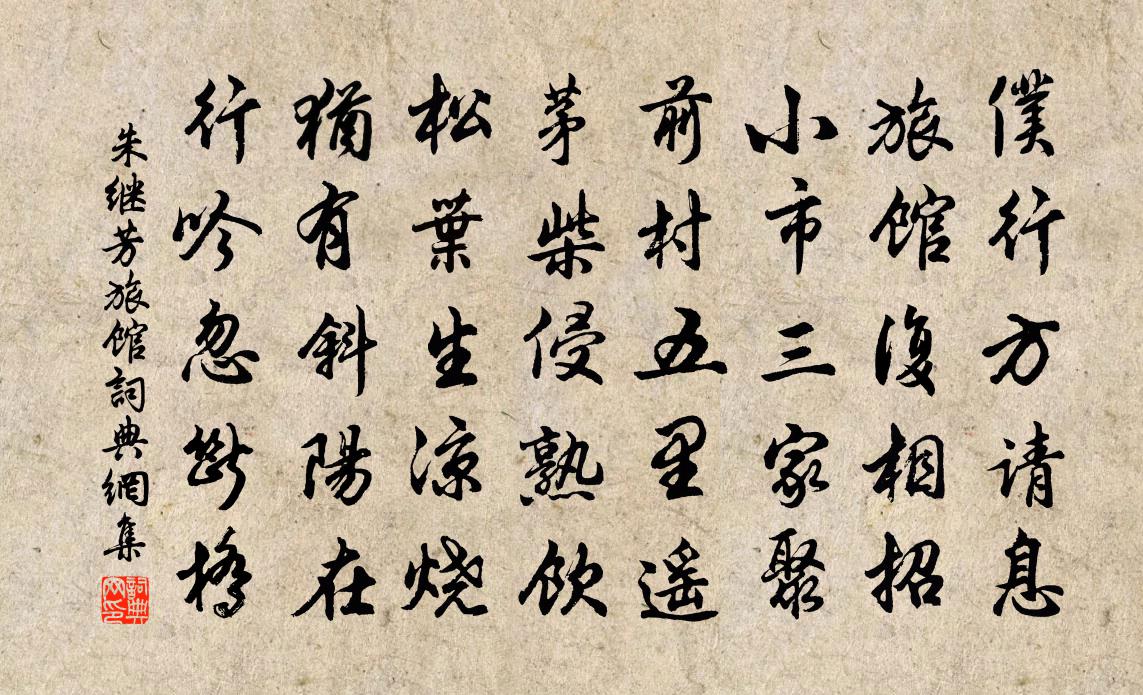 僕行方请息
旅馆復相招
小市三家聚
前村五里遥
茅柴侵熟飲
松葉生凉烧
猶有斜陽在
行吟忽斷橋
朱继芳旅馆詞典網集
詞典网印